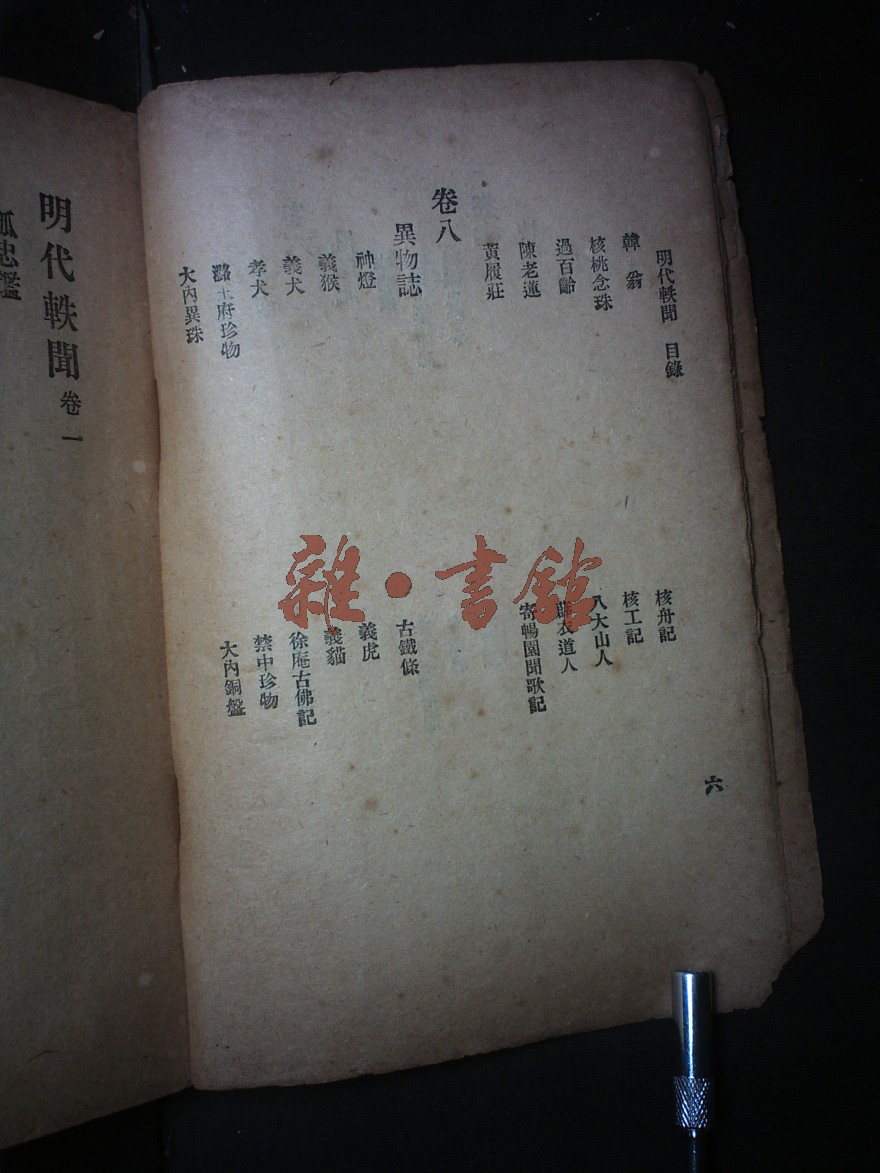 明代軼聞 目錄
六
核舟記
韓翁
核工記
核桃念珠
八大山人
過百齡
薜衣道人
陳老蓮
寄暢園聞歌記
黃履莊
卷八
異物誌
古鐵條
神燈
義虎
義猴
義貓
義犬
徐庵古佛記
孝犬
禁中珍物
潞王府珍物
大內銅盤
大內異珠
明代軼聞 卷一
孤忠鑑
雜·書館